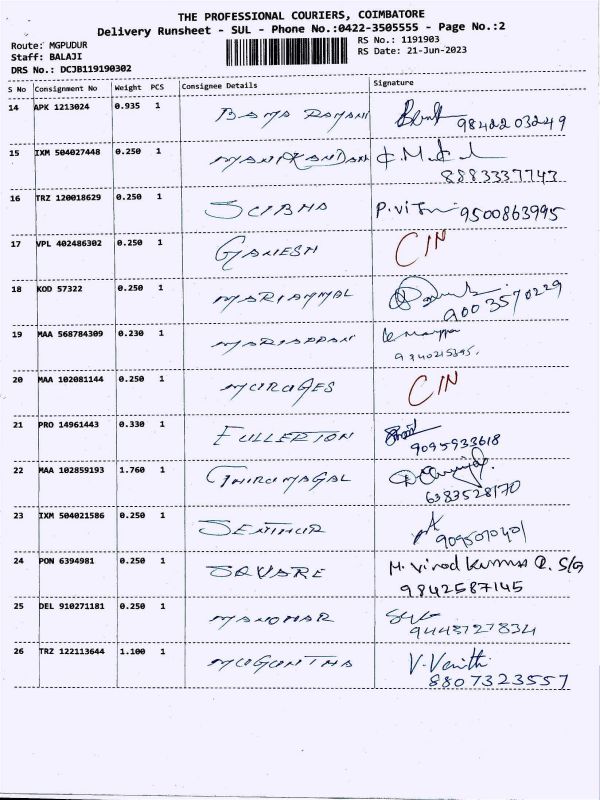 THE PROFESSIONAL COURIERS, COIMBATORE
Delivery Runsheet - SUL - Phone No.:0422-3505555 - Page No.:2
Route: MGPUDUR RS No.: 1191903
Staff: BALAJI RS Date: 21-Jun-2023
DRS No.: DCJB119190302
S No Consignment No Weight PCS Consignee Details Signature
14 APK 1213024 0.935 1 BAMA RAMANI
9842203249
15 IXM 504027448 0.250 1 MANIKANDAN
8883337743
16 TRZ 120018629 0.250 1 9500863995
17 VPL 402486302 0.250 1 GANESH CIN
18 KOD 57322 0.250 1 MARIAMMAL
9003570229
19 MAA 568784309 0.230 1 MARIAPPAN
20 MAA 102081144 0.250 1 MURUGES CIN
21 PRO 14961443 0.330 1 FULLERTON
9095933618
22 MAA 102859193 1.760 1 THIRUMAGAL
23 IXM 504021586 0.250 1 SENTHUR
24 PON 6394981 0.250 1 SQUARE M. Vinod Kumar
9842587145
25 DEL 910271181 0.250 1 MANOHAR
9443727834
26 TRZ 122113644 1.100 1 V. Vanithi
8807323557